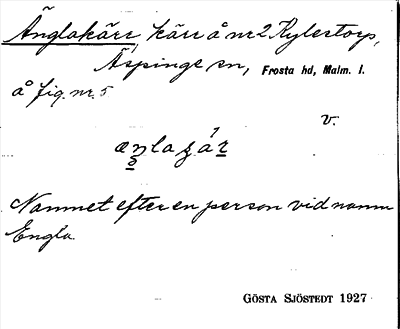 Änglakärr, kärr å nr 2 Rylestorp,
Äspinge sn, Frosta hd, Malm. l.
å fig. nr. 5
v.
Namnet efter en person vid namn
Engla.
GÖSTA SJÖSTEDT 1927